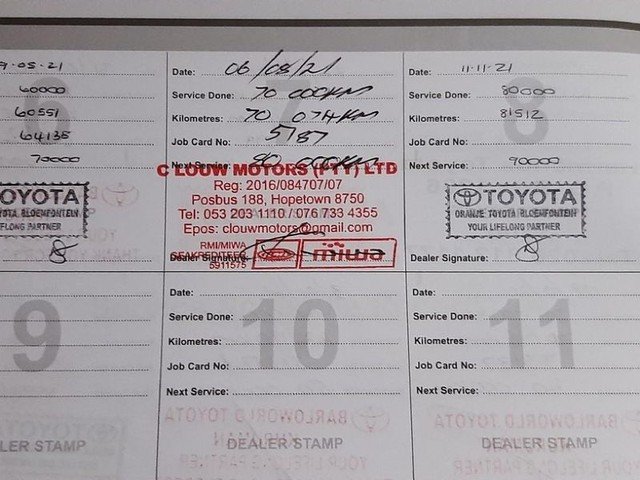 9-05-21
60000
60551
64135
70000
TOYOTA
TOYOTA BLOEMFONTEIN
LIFELONG PARTNER
7
Date: 06/08/21
Service Done: 70 000KM
Kilometres: 70 074KM
Job Card No: 5787
Next Service: 80 000KM
C LOUW MOTORS (PTY) LTD
Reg: 2016/084707/07
Posbus 188, Hopetown 8750
Tel: 053 203 1110 / 076 733 4355
Epos: clouwmotors@gmail.com
RMI/MIWA
GEAKKREDITEER
5911575
Dealer Signature:
miwa
8
Date: 11-11-21
Service Done: 80000
Kilometres: 81512
Job Card No:
Next Service: 90000
TOYOTA
ORANJE TOYOTA BLOEMFONTEIN
YOUR LIFELONG PARTNER
Dealer Signature:
9
LER STAMP
10
Date:
Service Done:
Kilometres:
Job Card No:
Next Service:
DEALER STAMP
11
Date:
Service Done:
Kilometres:
Job Card No:
Next Service:
DEALER STAMP